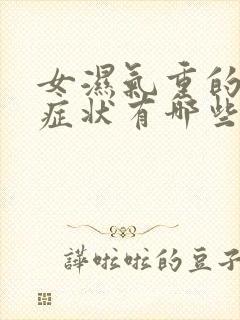 女濕氣重的
症状有哪些
譁啦啦的豆子